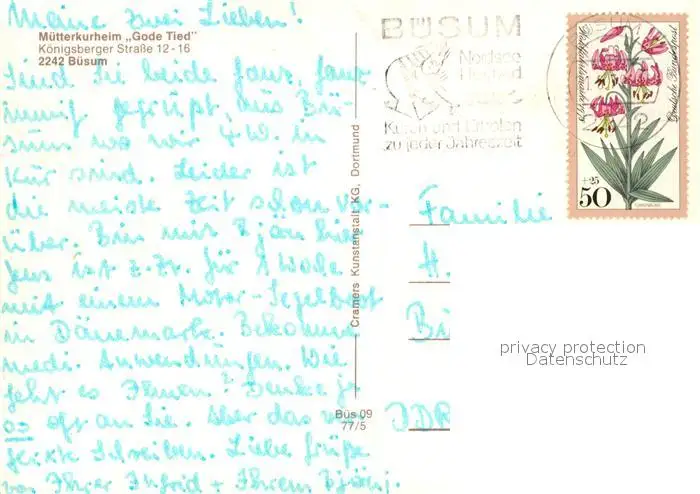 Meine zwei Lieben!
Mütterkurheim „Gode Tied"
Königsberger Straße 12-16
2242 Büsum
Sind Sie beide ganz, ganz
innig gegrüßt, aus Bü-
sum wo wir 4 W. in
Kur sind. Leider ist
die meiste Zeit schon vor-
über. Bin mit hier
ist z. Zt. für 1 Woche
mit einem Motor-Segelboot
in Dänemark. Bekomme
mediz. Anwendungen. Wie
geht es Ihnen? Denke ja
so oft an Sie. Aber das
Schreiben. Liebe Grüße
von Ihrer Ingrid + Ihrem
BÜSUM
Nordsee
Heilbad
Kuren und Erholen
zu jeder Jahreszeit
Wohlfahrtsmarke
Deutsche Bundespost
+25
50
Cramers Kunstanstalt KG, Dortmund
Büs 09
77/5
Familie
H.
Bü
DDR
privacy protection
Datenschutz